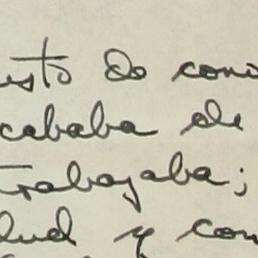 usto do cono
cababa de
trabajaba;
lud y con